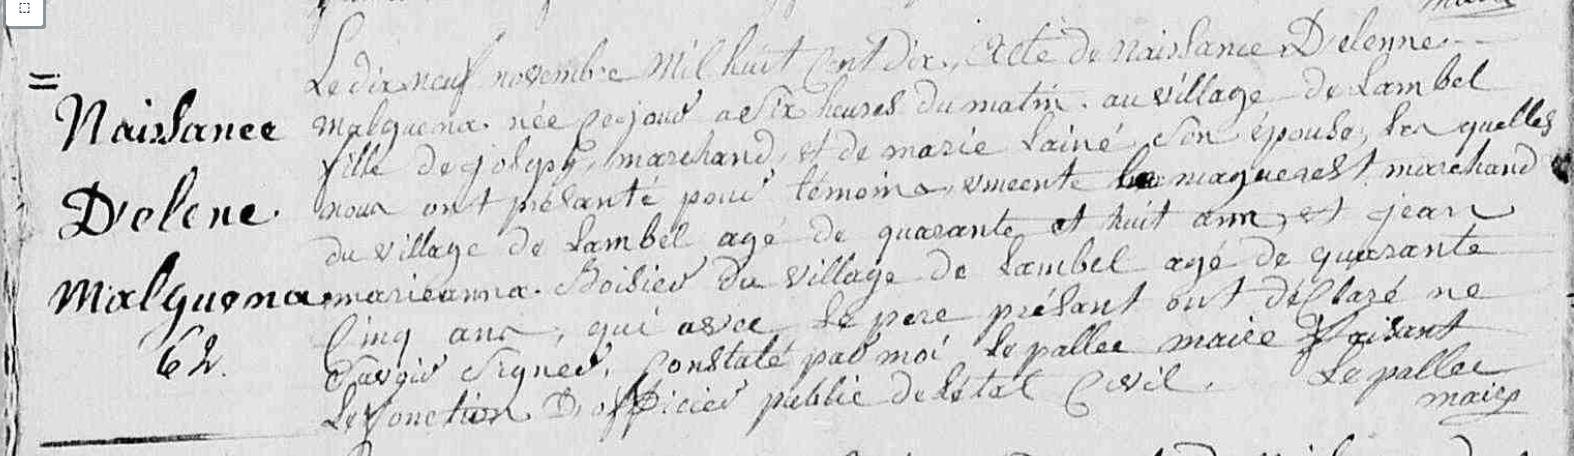 =
Naissance
D'elene
Malquena
62.
Le dix neuf novembre mil huit Cent dix, Acte de Naissance D'elenne
malquena. née Ce jour a Six heures du matin. au village de Lambel
fille de joseph, marchand, et de marie Lainé Son épouse, les quelles
nous ont présanté pour témoins, vincente maguerest marchand
du village de Lambel agé de quarante et huit ans, et jean
marieanna. Boisier du village de Lambel agé de quarante
Cinq ans, qui avec le pere présant ont déClaré ne
Savoir Signer. Constaté par moi le pallec maire faisant
Le fonction D'officier public de l'état Civil. Le pallec
maire